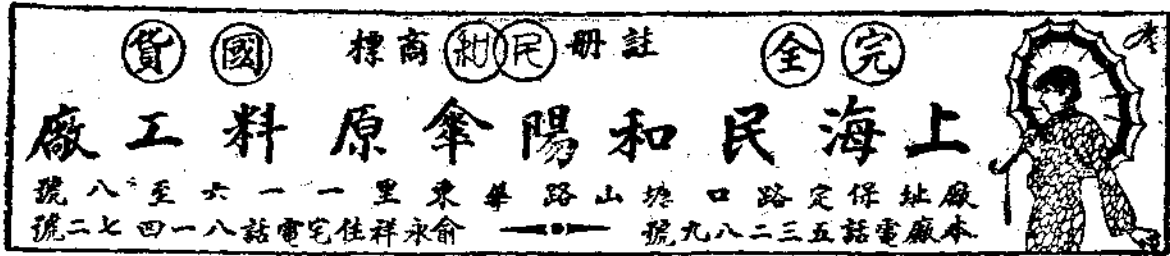 完全 註册民商標 國貨
上海民和陽傘原料工廠
廠址保定路口塘山路華東里一一六至八號
本廠電話五三二八九號 俞永祥住宅電話八一四七二號